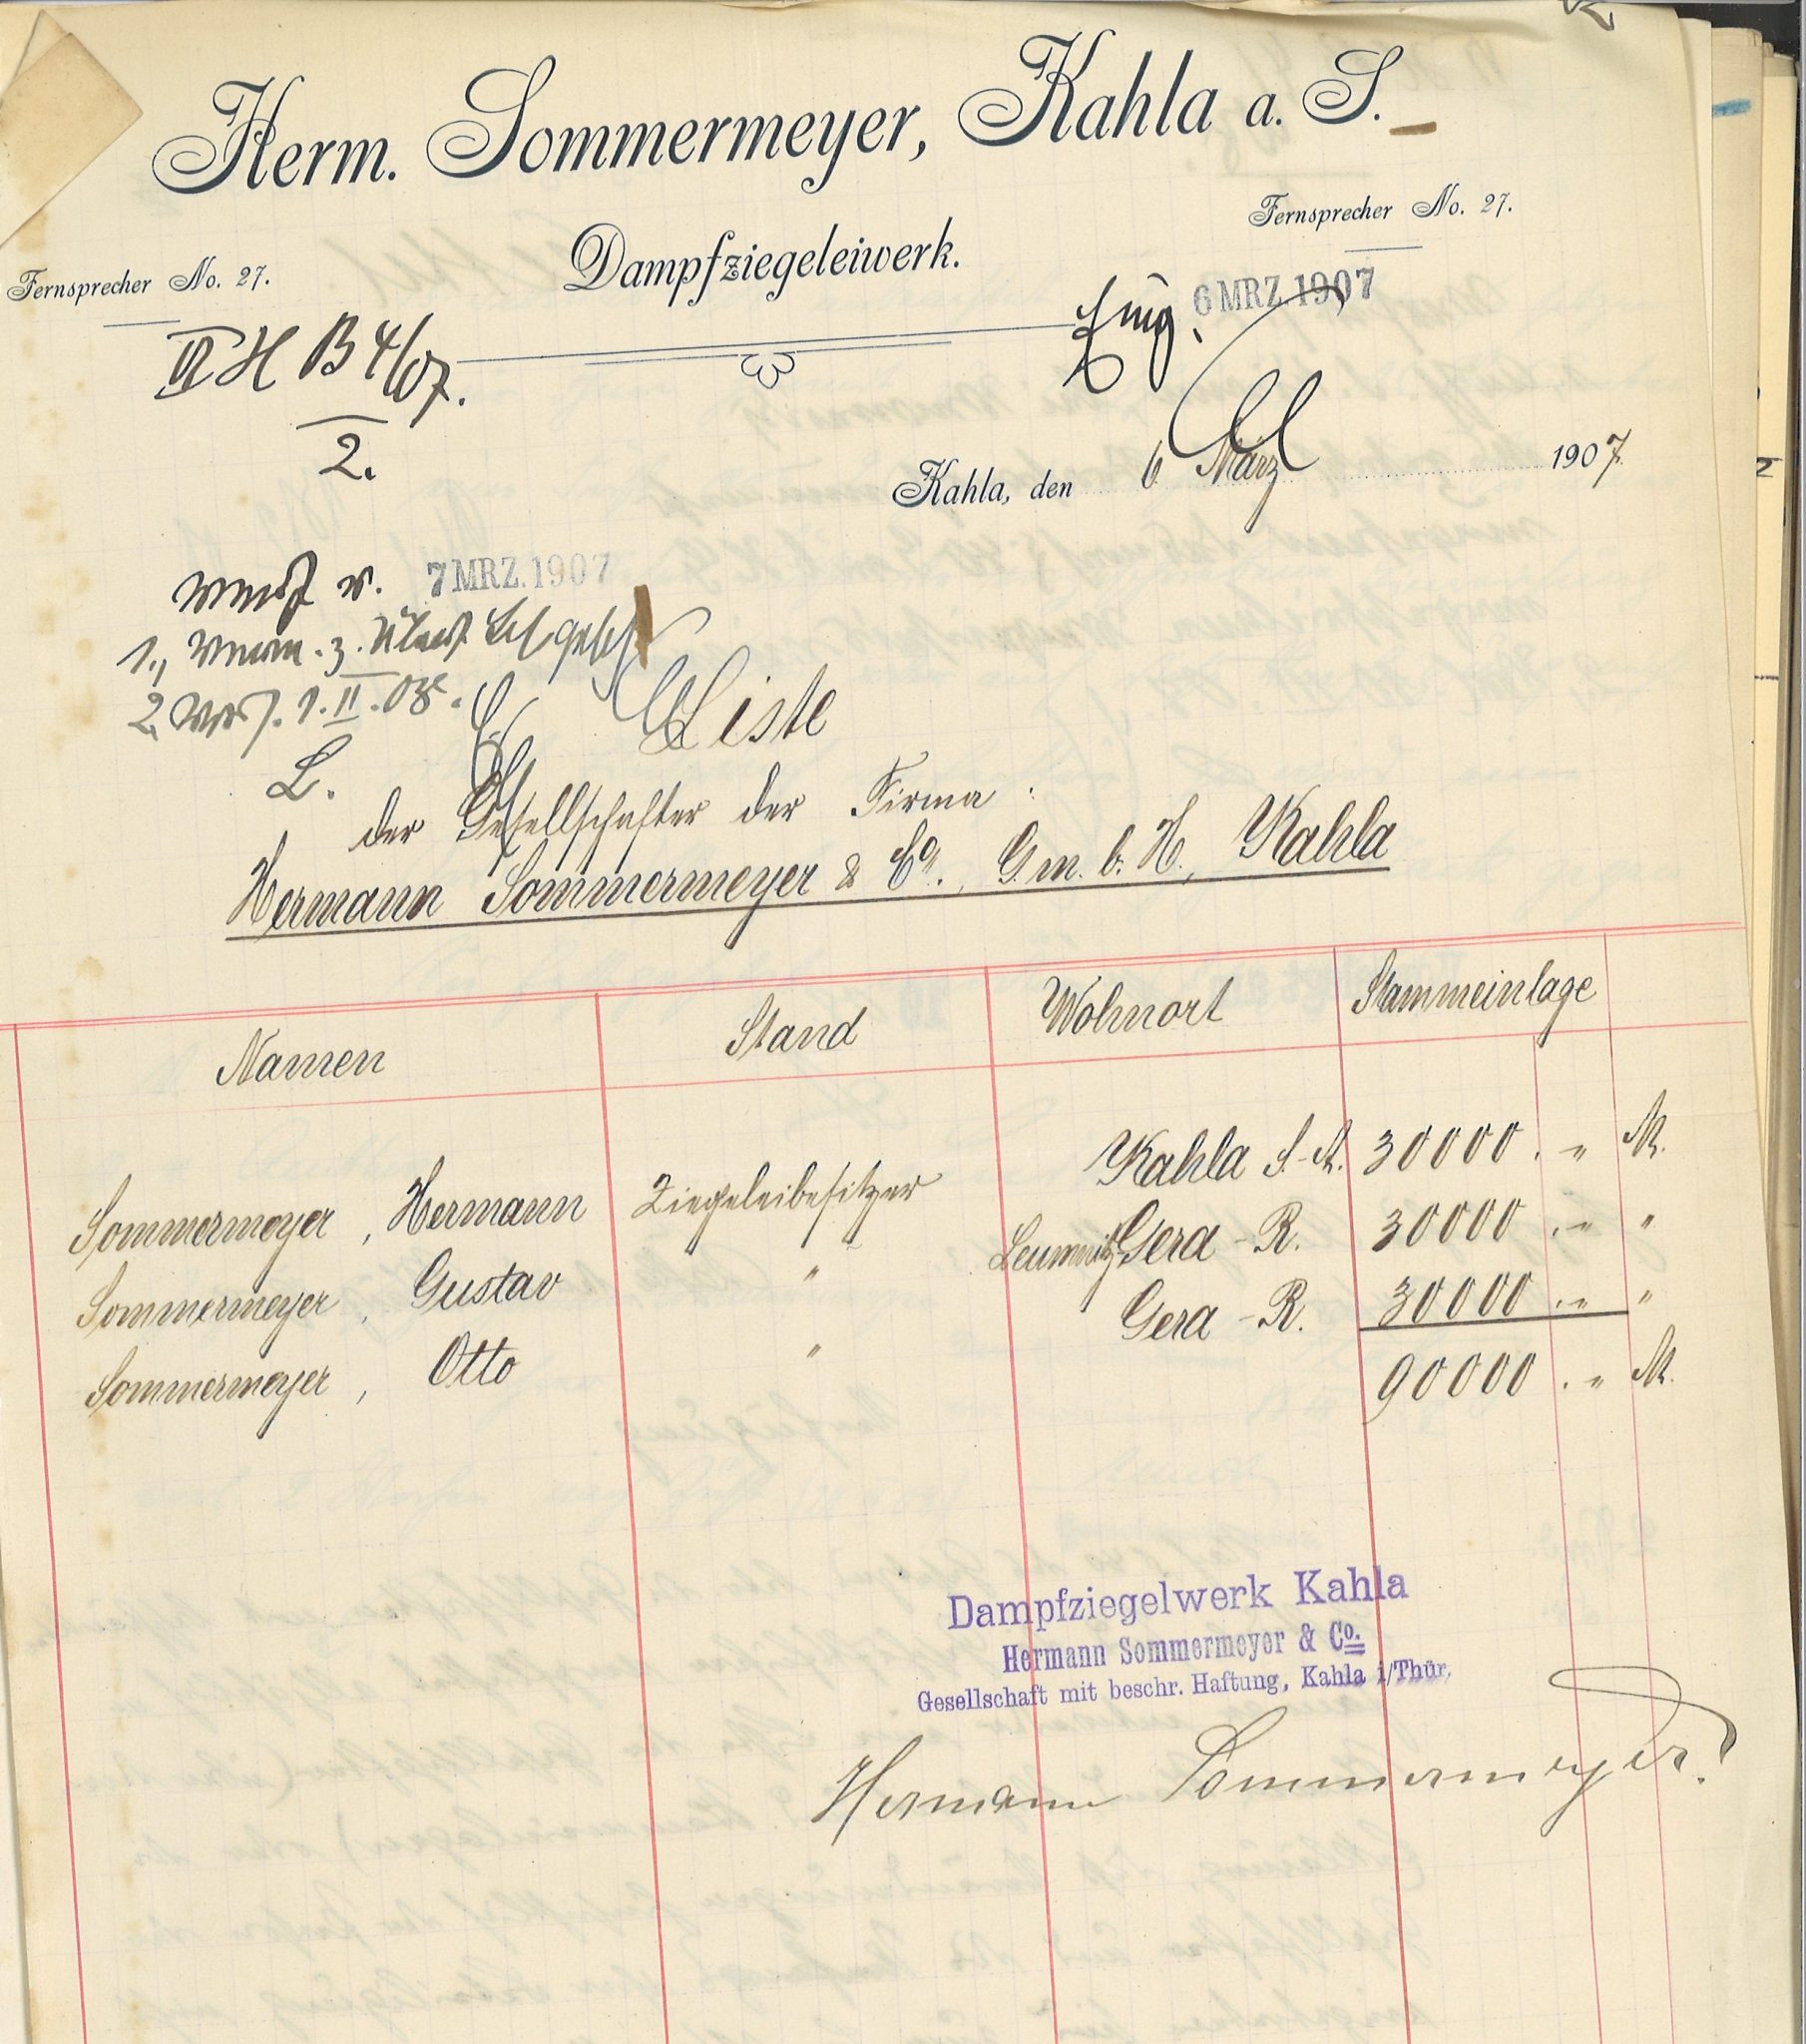 Herm. Sommermeyer, Kahla a. S.
Dampfziegeleiwerk.
Fernsprecher No. 27.
Fernsprecher No. 27.
Eing. 6 MRZ. 1907
H B 4/07.
2.
Kahla, den 6. März 1907.
7 MRZ. 1907
Liste
L.
der Gesellschafter der Firma:
Hermann Sommermeyer & Co., G. m. b. H., Kahla
Namen Stand Wohnort Stammeinlage
Sommermeyer, Hermann Ziegeleibesitzer Kahla S.-A. 30000 . „ M.
Sommermeyer, Gustav " Leumnitz Gera-R. 30000 . „ "
Sommermeyer, Otto " Gera-R. 30000 . „ "
90000 . „ M.
Dampfziegelwerk Kahla
Hermann Sommermeyer & Co.
Gesellschaft mit beschr. Haftung, Kahla i/Thür.
Hermann Sommermeyer.